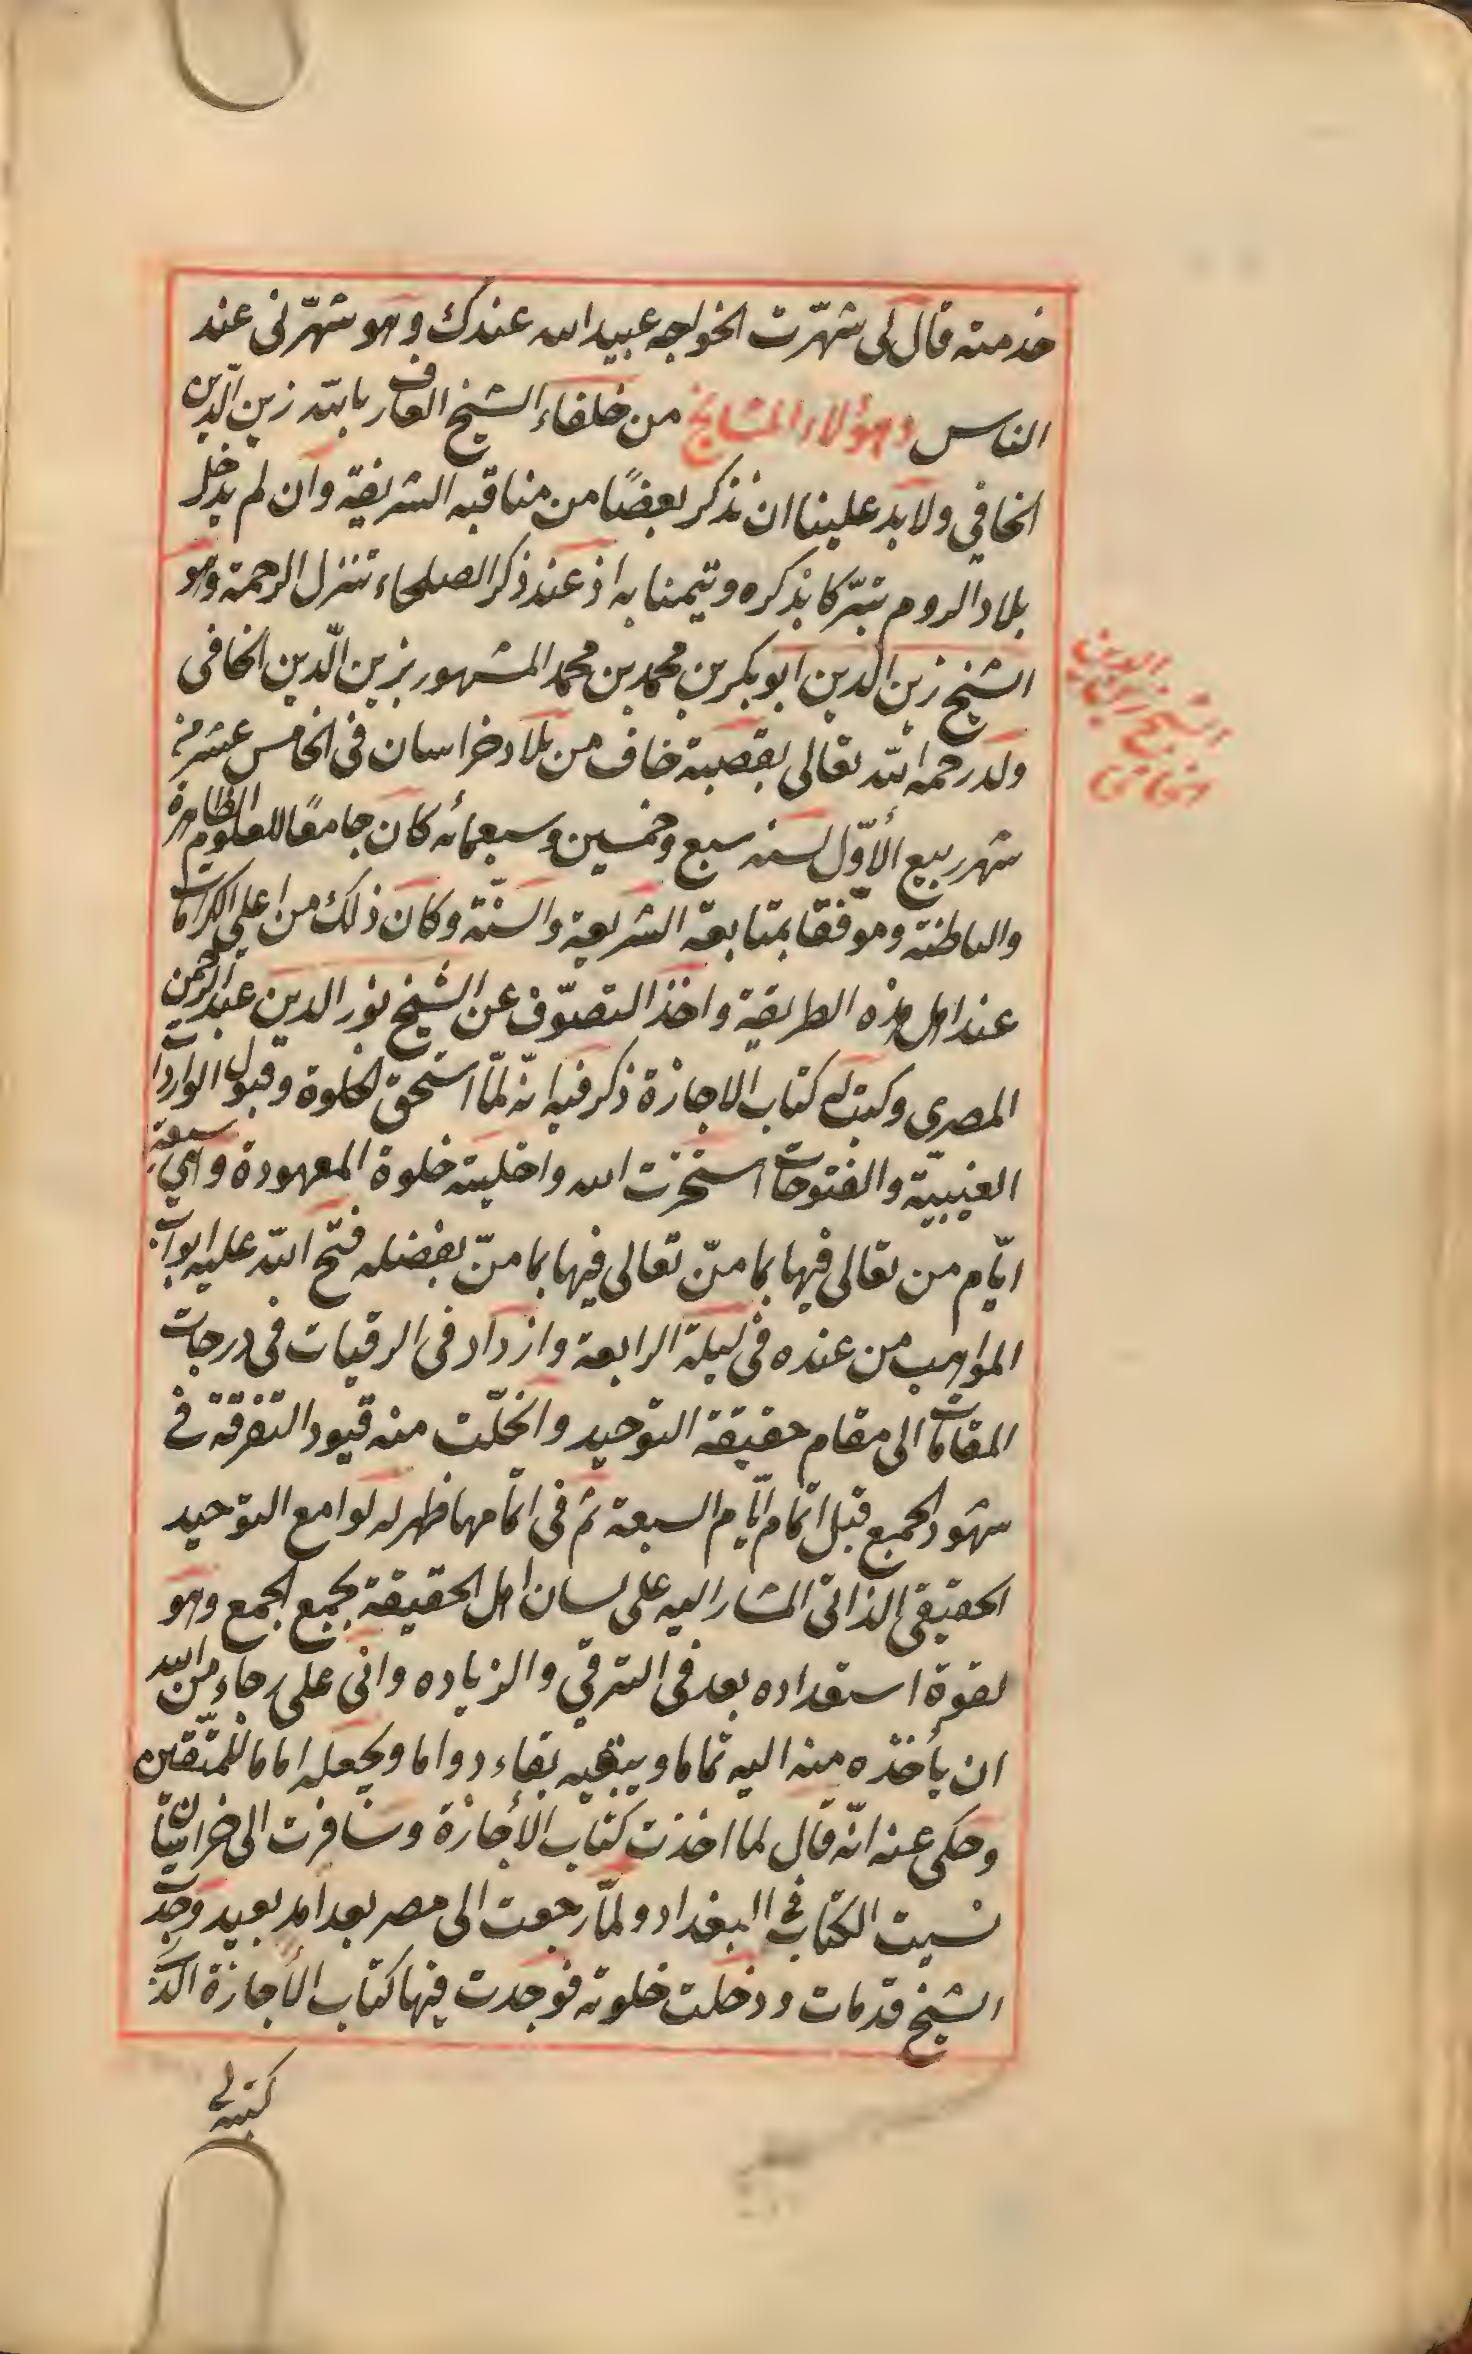 خدمته قال لى شهّرت الخواجه عبيد الله عندك وهو شهّرنى عند
الناس وهؤلاء المشايخ من خلفاء الشيخ العارف بالله زين الّدين
الخافي ولا بد علينا ان نذكر بعضًا من مناقبه الشريفة وان لم يدخل
بلاد الروم تبرّكا بذكره وتيمنا به اذ عند ذكر الصلحاء تتنزل الرحمة وهو
الشيخ زين الدين ابو بكر بن محمد بن محمد المشهور بزين الّدين الخافى
الشيخ زين الدين
الخافى
ولد رحمه الله تعالى بقصبة خاف من بلاد خراسان فى الخامس عشر من
شهر ربيع الأوّل لسنه سبع وخمسين وسبعمائه كان جامعًا للعلوم الظاهرة
والباطنه وموّفقا بمتابعة الشريعة والسنّة وكان ذلك من اعلى الكرامات
عند اهل هذه الطريقة واخذ التصوّف عن الشيخ نور الدين عبد الرحمن
المصرى وكتب له كتاب الاجازة ذكر فيه انّه لمّا استحق الخلوة وقبول الواردات
الغيبيّة والفتوحات استخرت الله واخليته خلوة المعهودة وهى سبعة
ايّام من تعالى فيها بما منّ تعالى فيها بما منّ بفضله فتح الله عليه ابواب
المواهب من عنده فى ليلة الرابعة وازداد فى الرقيات فى درجات
المقامات الى مقام حقيقة التوحيد وانحلّت منه قيود التفرقة في
شهود الجمع قبل اتمام ايّام السبعة ثم فى اتمامها ظهر له لوامع التوحيد
الحقيقى الذاتى المشار اليه على لسان اهل الحقيقة بجمع الجمع وهو
لقوة استعداده بعد فى الترقي والزياده وانى على رجاء من الله
ان يأخذه منه اليه تماما ويبقيه بقاء دواما ويجعله اماما للمتّقين
وحكى عنه انّه قال لما اخذت كتاب الأجازة وسافرت الى خراسان
نسيت الكتاب فى البغداد ولمّا رجعت الى مصر بعد امد بعيد وجدت
الشيخ قد مات ودخلت خلوته فوجدت فيها كتاب الأجازة الذ
كتبه لي